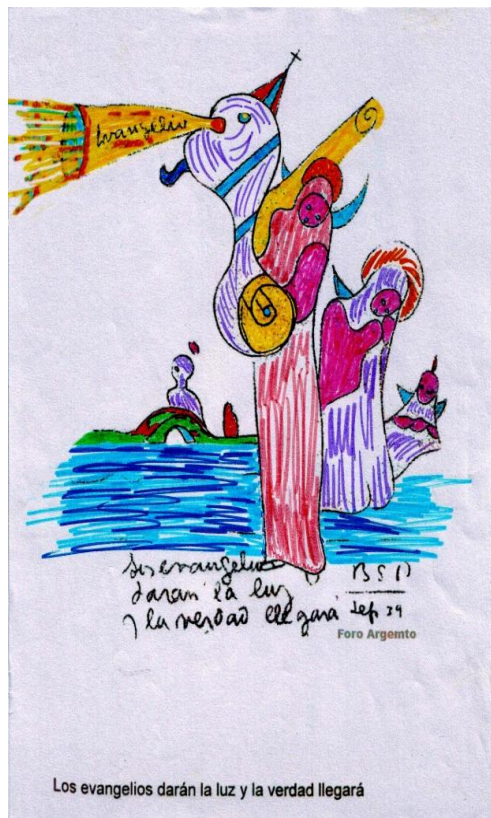 Evangelio
Los evangelios
daran la luz
y la verdad llegará
BSP
Sep 39
Foro Argemto
Los evangelios darán la luz y la verdad llegará